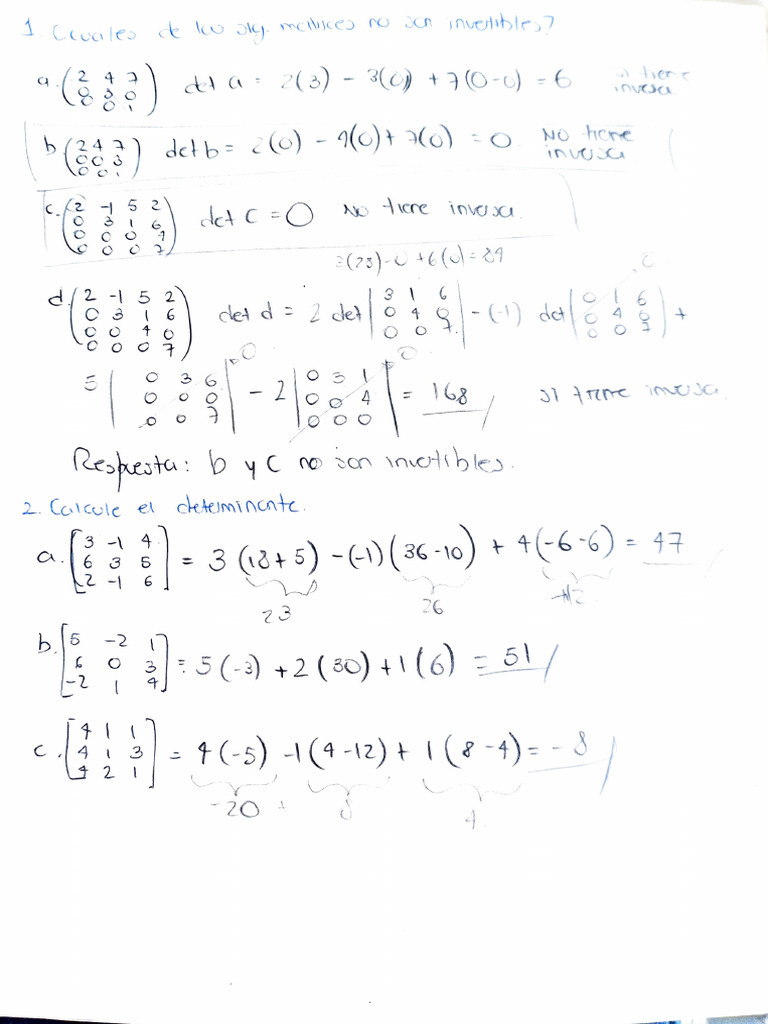 1. Cuales de las sig. matrices no son invertibles?
a. (2 4 7
0 3 0
0 0 1) det a = 2(3) - 3(0) + 7(0-0) = 6 si tiene inversa
b (2 4 7
0 0 3
0 0 1) det b = 2(0) - 4(0) + 7(0) = 0 NO tiene inversa
c. (2 -1 5 2
0 3 1 6
0 0 0 4
0 0 0 7) det C = 0 NO tiene inversa
3(28)-0+6(0)=84
d. (2 -1 5 2
0 3 1 6
0 0 4 0
0 0 0 7) det d = 2 det |3 1 6
0 4 0
0 0 7| - (-1) det |0 1 6
0 4 0
0 0 7| + 0
5 |0 3 6
0 0 0
0 0 7| 0 - 2 |0 3 1
0 0 4
0 0 0| 0 = 168 si tiene inversa.
Respuesta: b y c no son invertibles.
2. Calcule el determinante.
a. [3 -1 4
6 3 5
2 -1 6] = 3 (18+5) - (-1) (36-10) + 4(-6-6) = 47
23 26 -12
b. [5 -2 1
6 0 3
-2 1 4] = 5(-3) + 2(30) + 1(6) = 51
c. [4 1 1
4 1 3
4 2 1] = 4(-5) - 1(4-12) + 1(8-4) = -8
-20 + 8 4